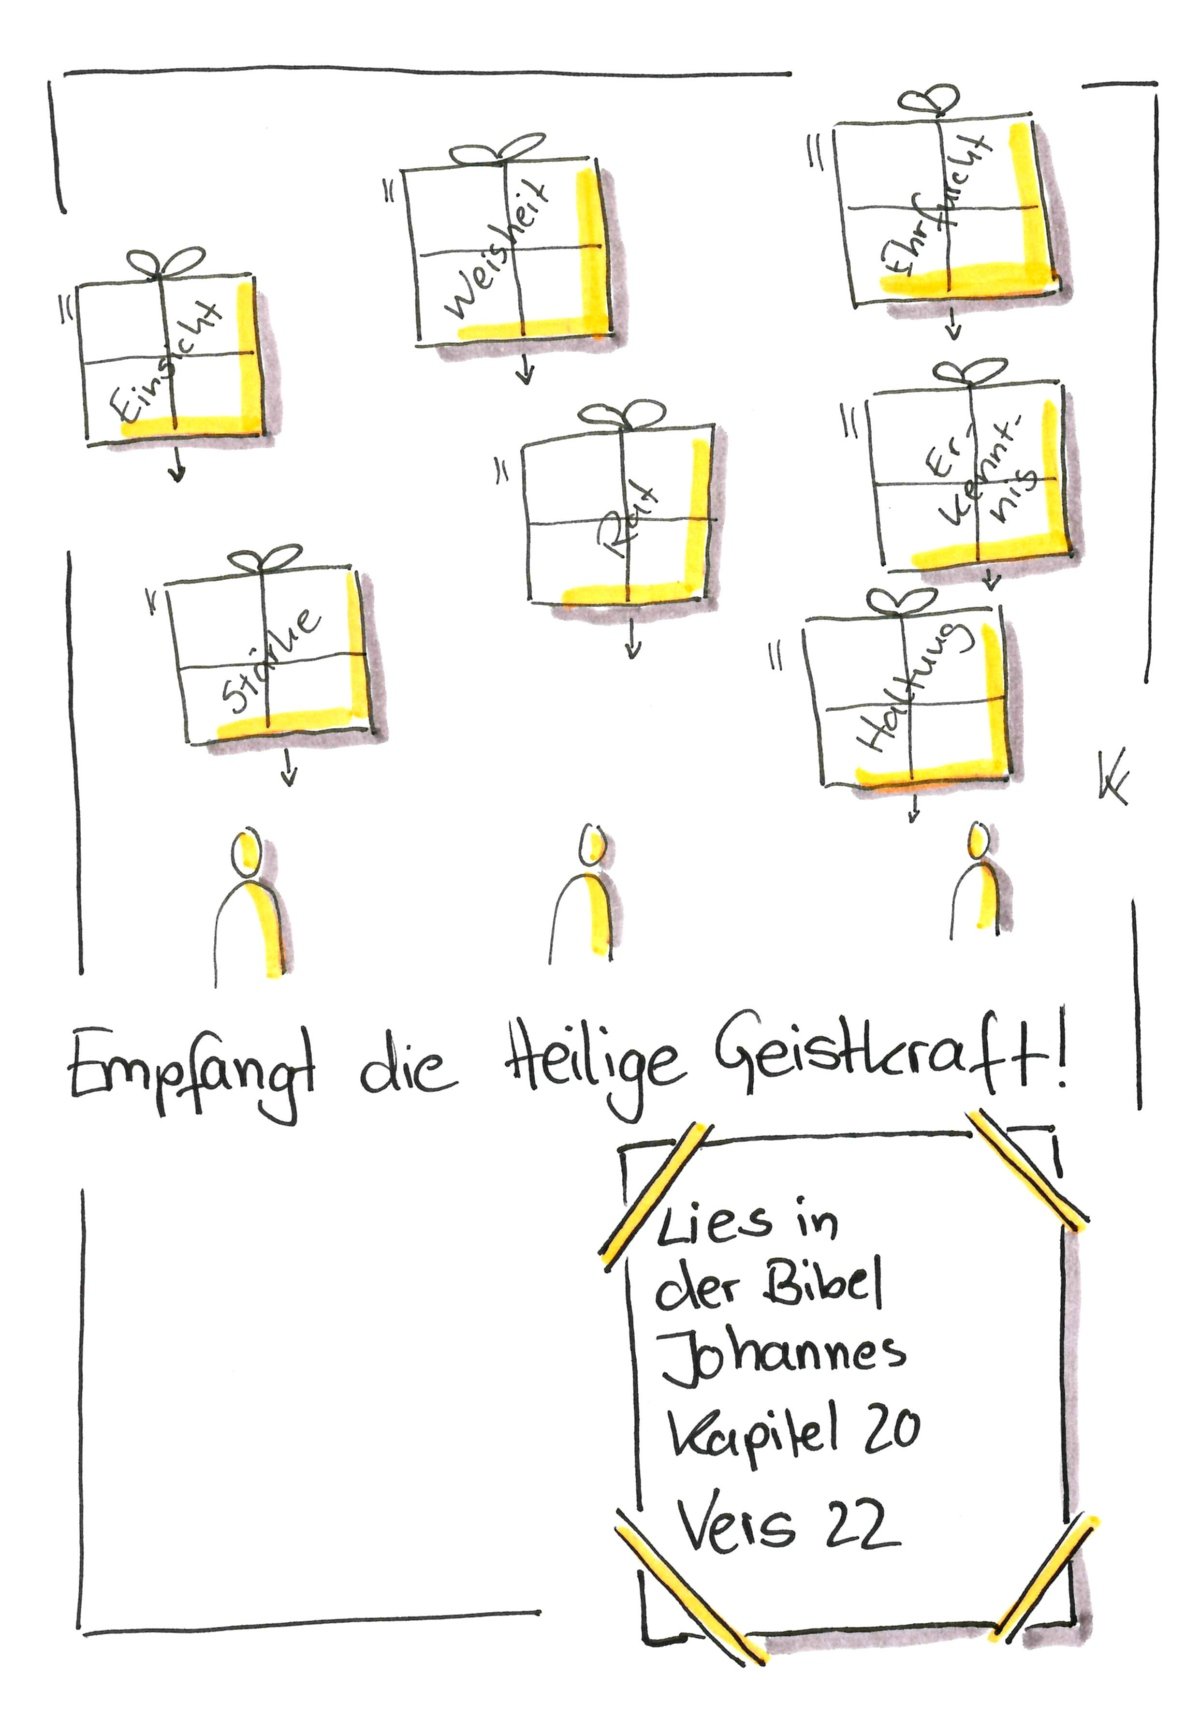 Ehrfurcht
Weisheit
Einsicht
Er-
kennt-
nis
Rat
Stärke
Haltung
KF
Empfangt die Heilige Geistkraft!
Lies in
der Bibel
Johannes
Kapitel 20
Vers 22